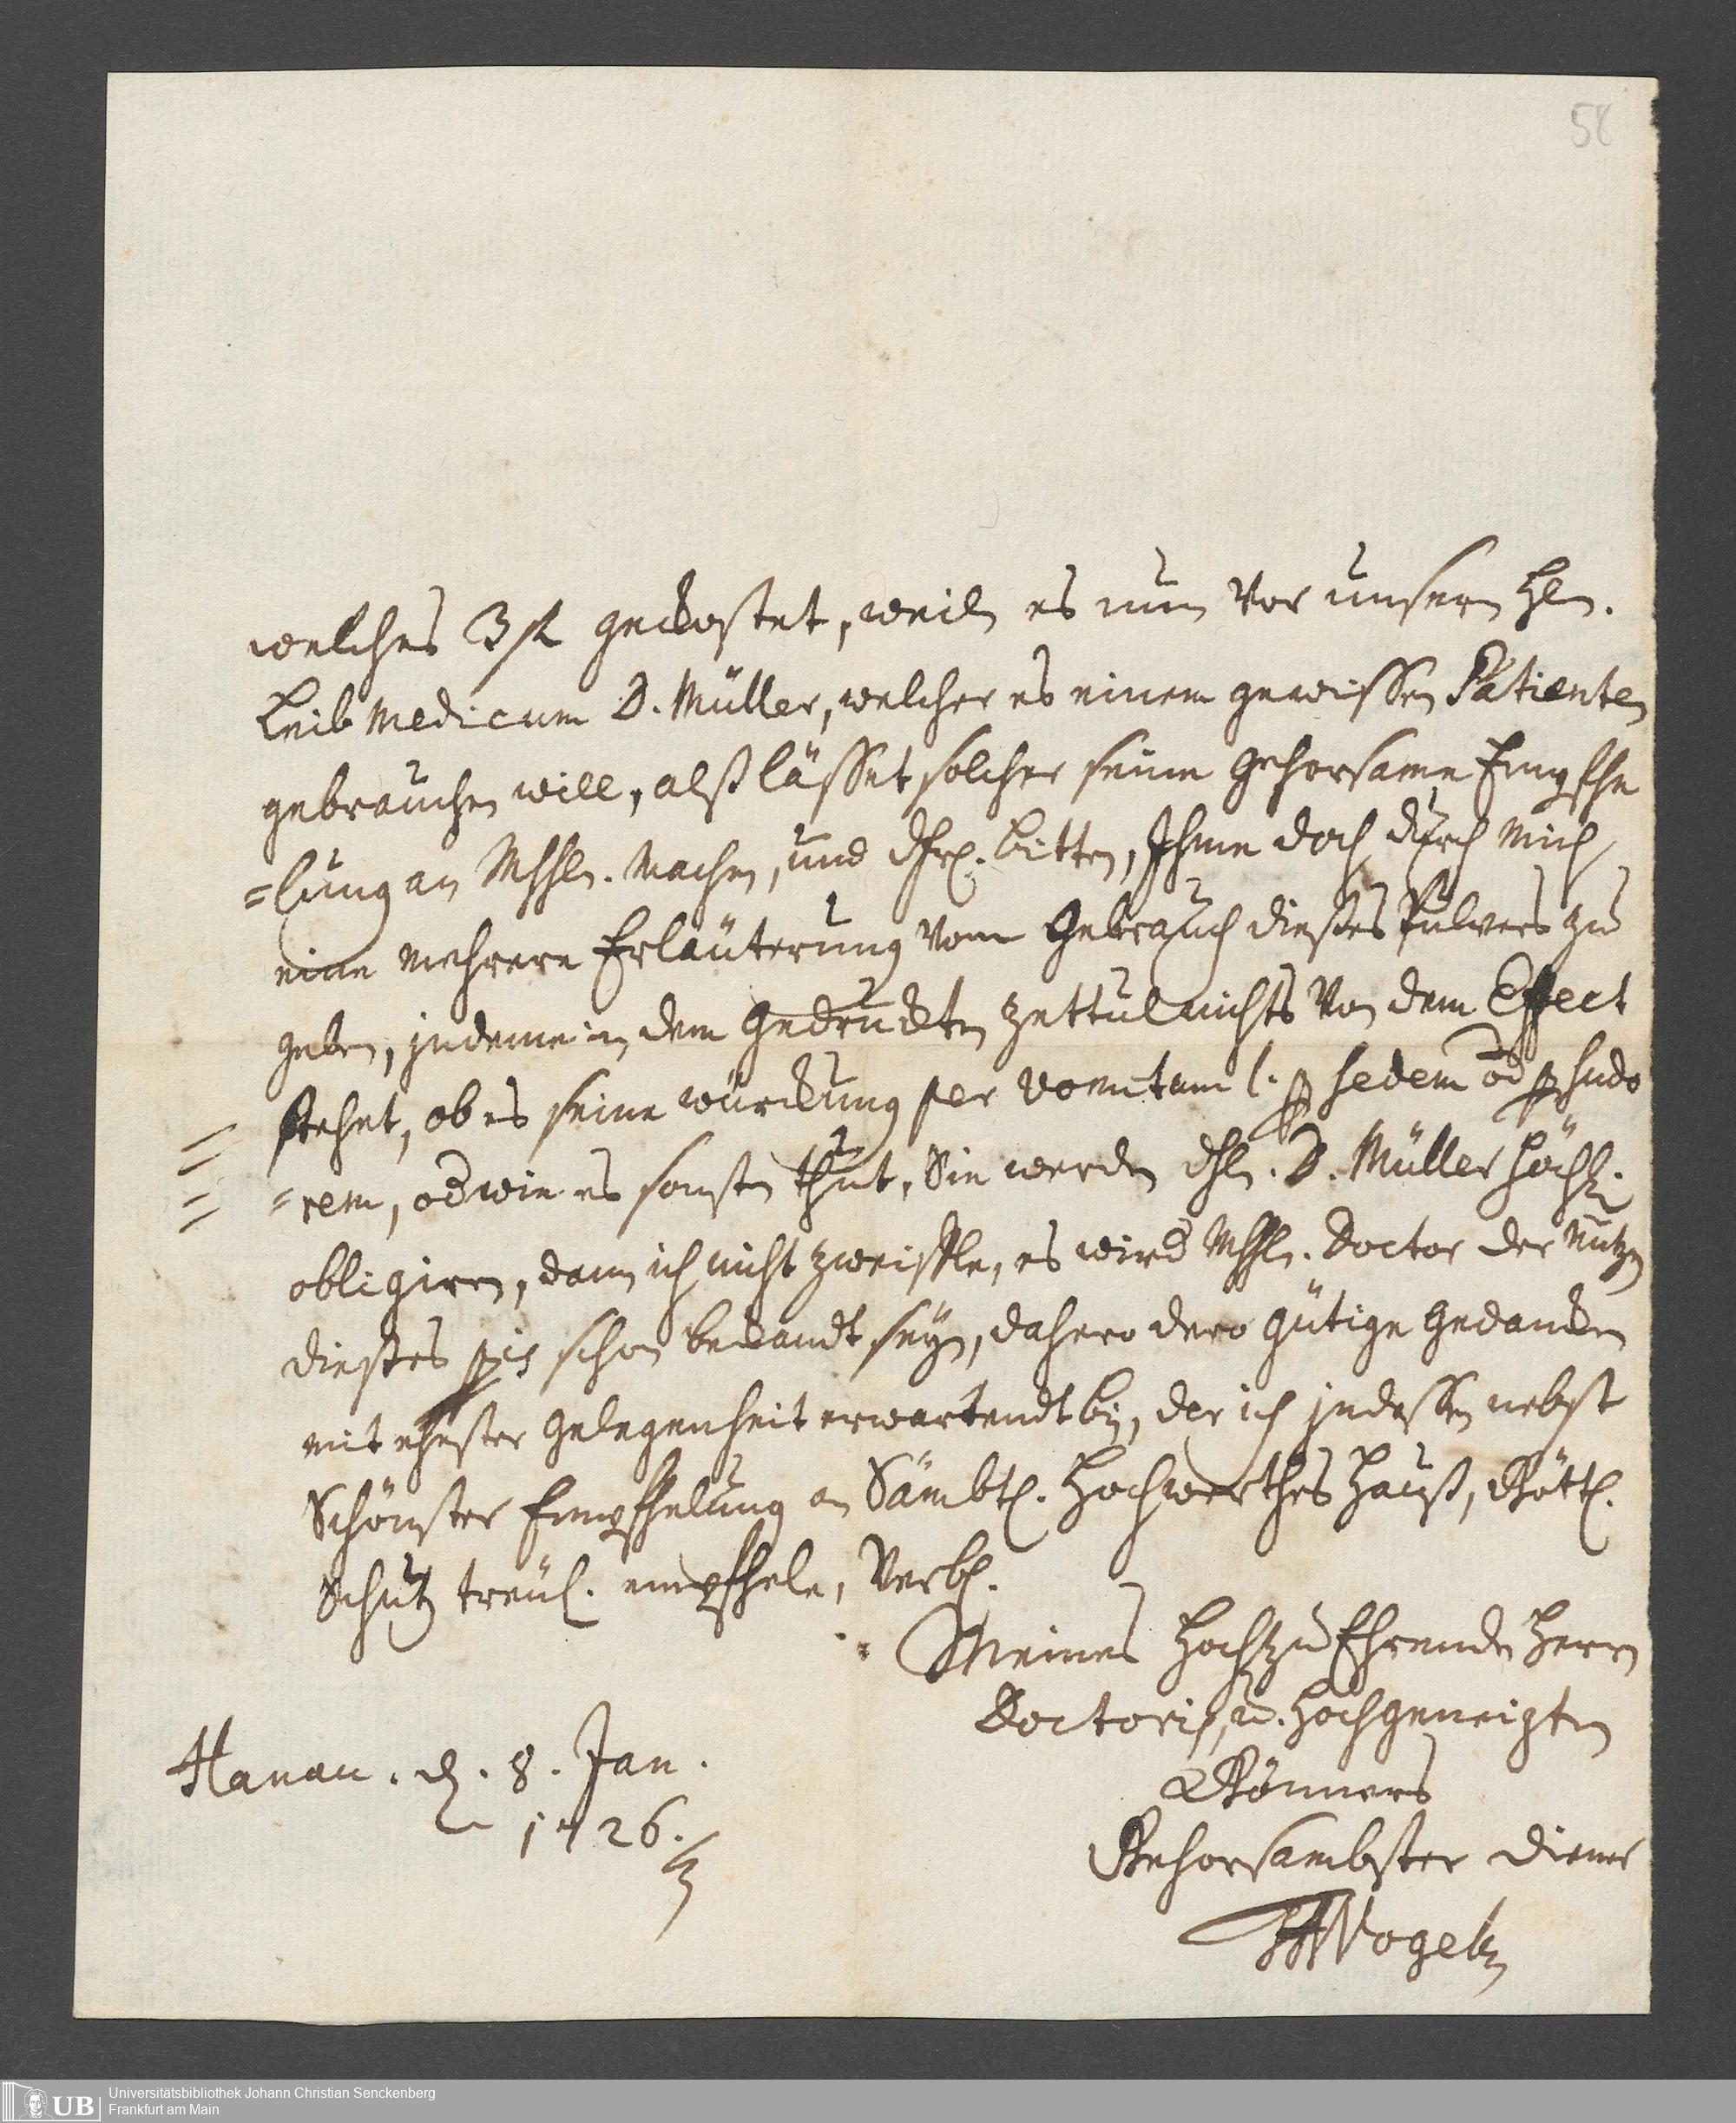 58
welches 3 fl gekostet, weiln es nun vor unsern Hln.
Leib Medicum D. Müller, welcher es einem gewissen Patienten
gebrauchen will, alß lässet solcher seine gehorsame Empfhe
=lung an MhHln. machen, und bitten, Ihme doch durch mich
eine mehrere Erläuterung vom Gebrauch dießes Pulvers zu
geben, indeme in dem gedruckten Zettul nichts von dem Effect
stehet, ob es seine würckung per vomitum l. p sedem od p sudo
=rem, od wie es sonsten thut, Sie werden Hln. D. Müller höchl.
obligiren, dann ich nicht zweiffle, es wird MhHln. Doctor der Nutzen
dießes schon bekandt seyn, dahero dero gütige Gedancken
mit ehester Gelegenheit erwartendt bin, der ich indessen nebst
Schönster Empfhelung an Sämbtl. Hochwerthes Hauß, Göttl.
Schutz treul. empfhele, Verbl.
Meines HochzuEhrenden Herrn
Doctoris, u. Hochgeneigten
Gönners
Gehorsambster Diener
Vogel
Hanau. d. 8. Jan.
1726.
UB
Universitätsbibliothek Johann Christian Senckenberg
Frankfurt am Main